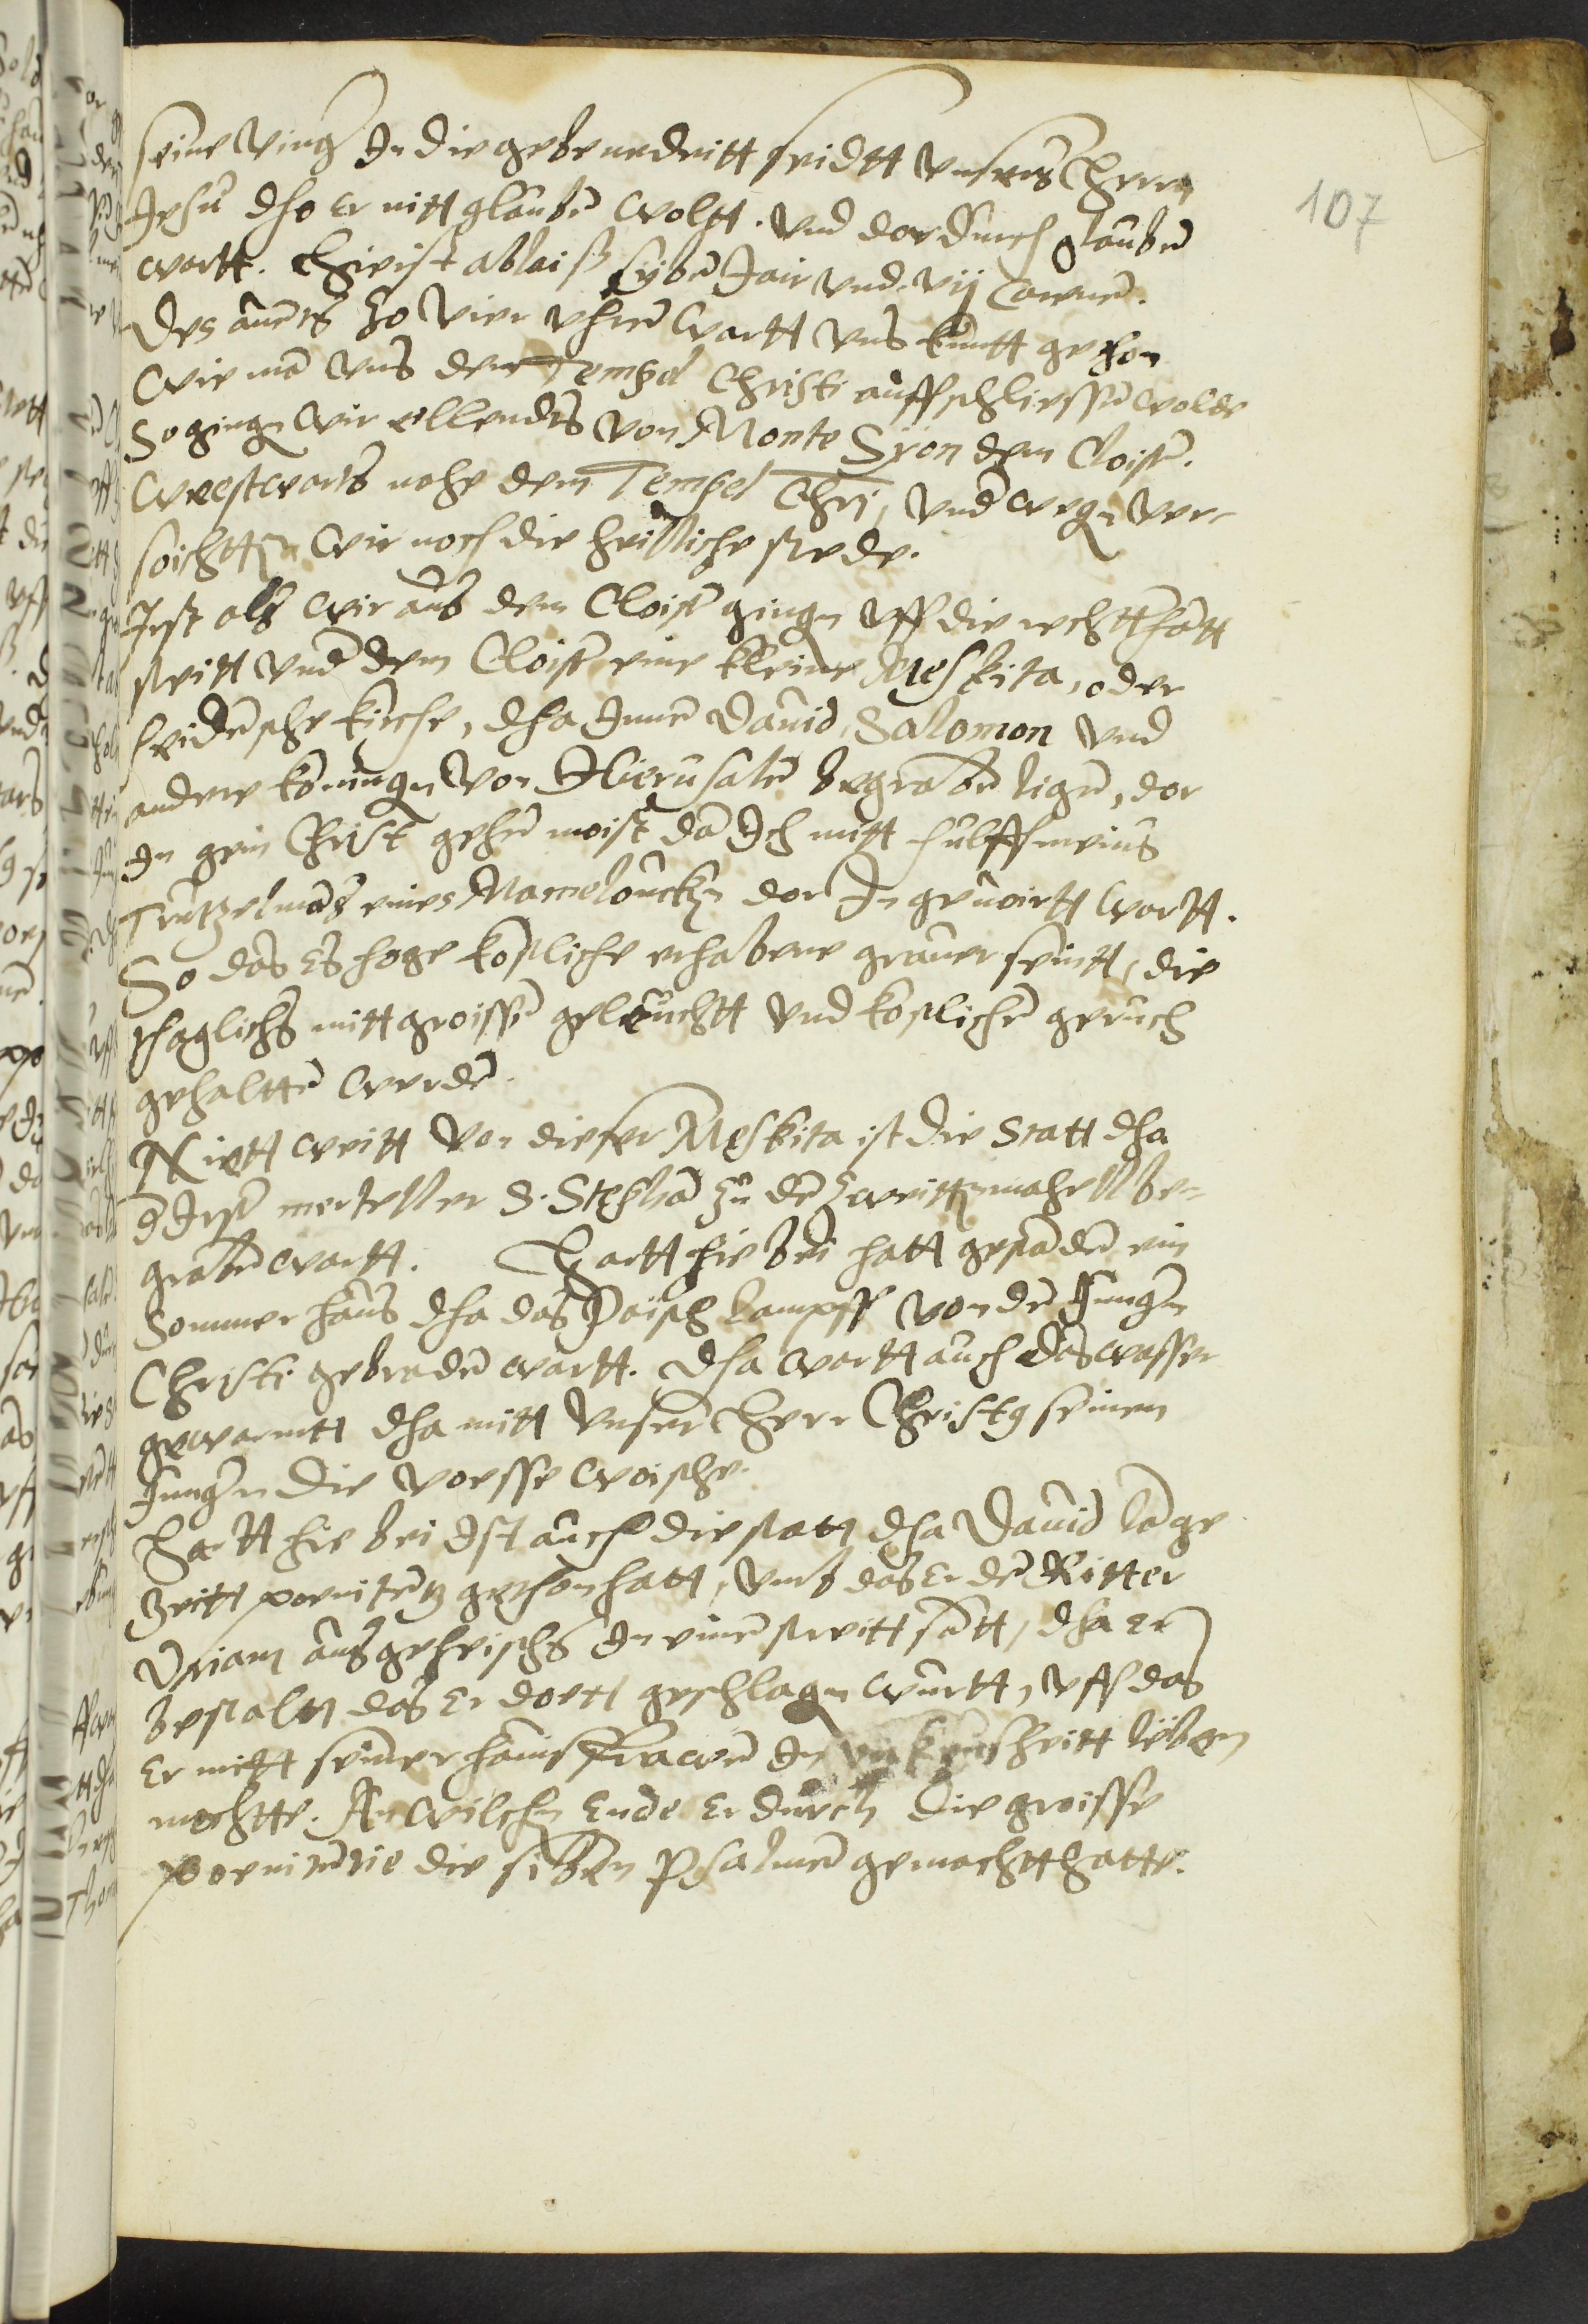 107
seine Vinger In die gebenedeitt seidtt vnsers Herrn
Jesu dho er nitt glauben wolltt. vnd dardurch glauben
wartt. Hie ist ablaiß syben Jair vnd vij carenen.
Des auents zo vier vhren wartt vns kuntt gethon
wie man vns den Tempel Christi auffschliessen wolde
So gingen wir ellendts von Monte Syon dem Cloister.
westwarts nahe dem Tempel Christi, vnder wegen ver-
soichtten wir noch die heilliche stede.
Irst als wir aus dem Cloister gingen vff die rechtt hantt
steitt vnder dem Cloister eine kleine Meskita, oder
heidensche kirche, dha Innen Dauid, Salomon vnd
andere koningen von Hierusalem begraben ligen, dar
In gein Christ gehen moist, dan Ich mitt hulff meins
Trutzelmans eines Mameloucken dar In gevoirtt wartt.
So das Es hoge kostliche erhabene grauer seintt, die
thaglichs mitt groissem geleuchtt vnd kostlichem geruch
gehaltten werden.
Niett weitt von dieser Meskita ist die statt dha
der Irst merteller S. Stephan zu dem zweitten mahell be-
graben wartt. Hartt hie bei hatt gestanden ein
Sommerhaus dha das Paisch Lampff von den Jungern
Christi gebraden wartt. dha wartt auch das wasser
gewarmtt dha mitt vnser Herr Christus seinen
Jungern die voesse woische.
Hartt hie bei Ist auch die statt dha Dauid lange
zeitt poenitentz gethon hatt, vmb das Er den Ritter
Vriam aus geheischs In einen streitt santt, dha Er
bestaltt das Er doett geschlagen wurtt, vff das
Er mitt seiner hausfrawen In vnkeuscheitt leben
mochtte. An wilchem Ende Er durch die groisse
poenitentie die sieben Psalmen gemachtt hatte.